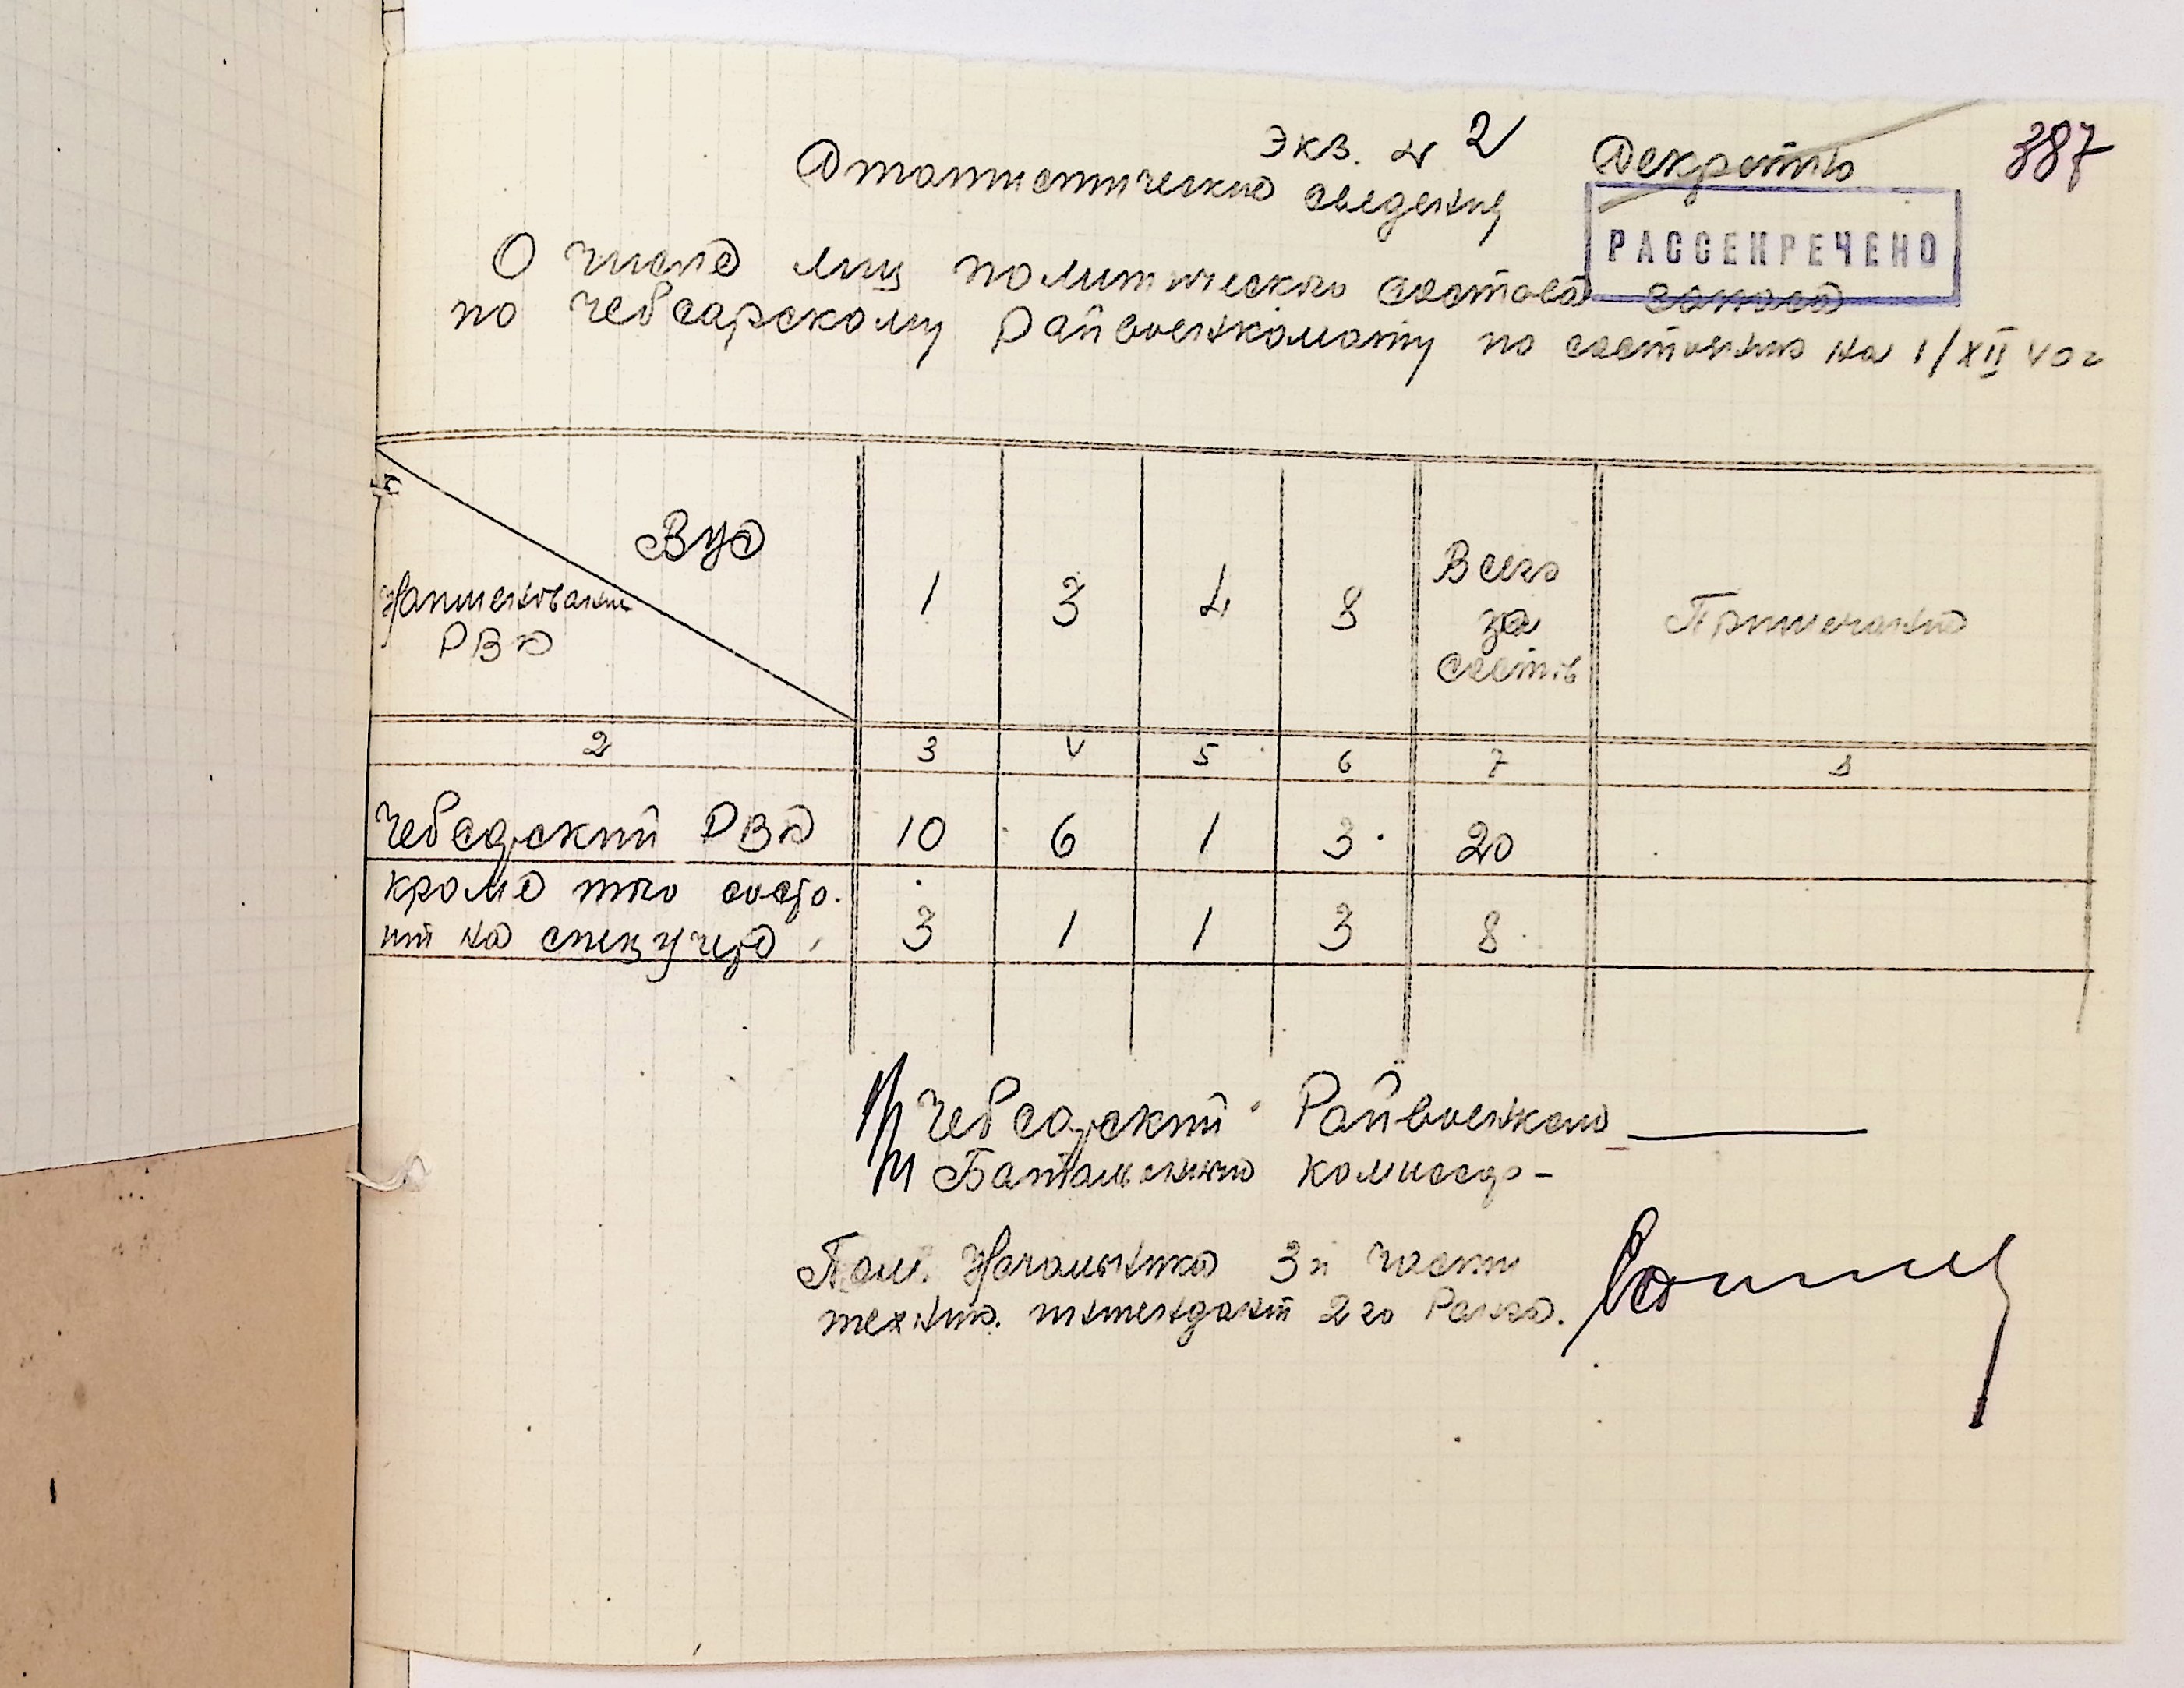 Экз. № 2 Секретно 387
Статистические сведения
РАССЕКРЕЧЕНО
О числе лиц политического состава запаса
по Чебсарскому Райвоенкомату по состоянию на 1/XII 40 г
ВУС
Наименование
РВК
1 3 4 8
Всего
за
состав
Примечание
2 3 4 5 6 7 8
Чебсарский РВК 10 6 1 3 20
кроме того состо-
ит на спецучете 3 1 1 3 8
Чебсарский Райвоенком
Батальонный комиссар -
Пом. Начальника 3й части
техник. интендант 2го Ранга.